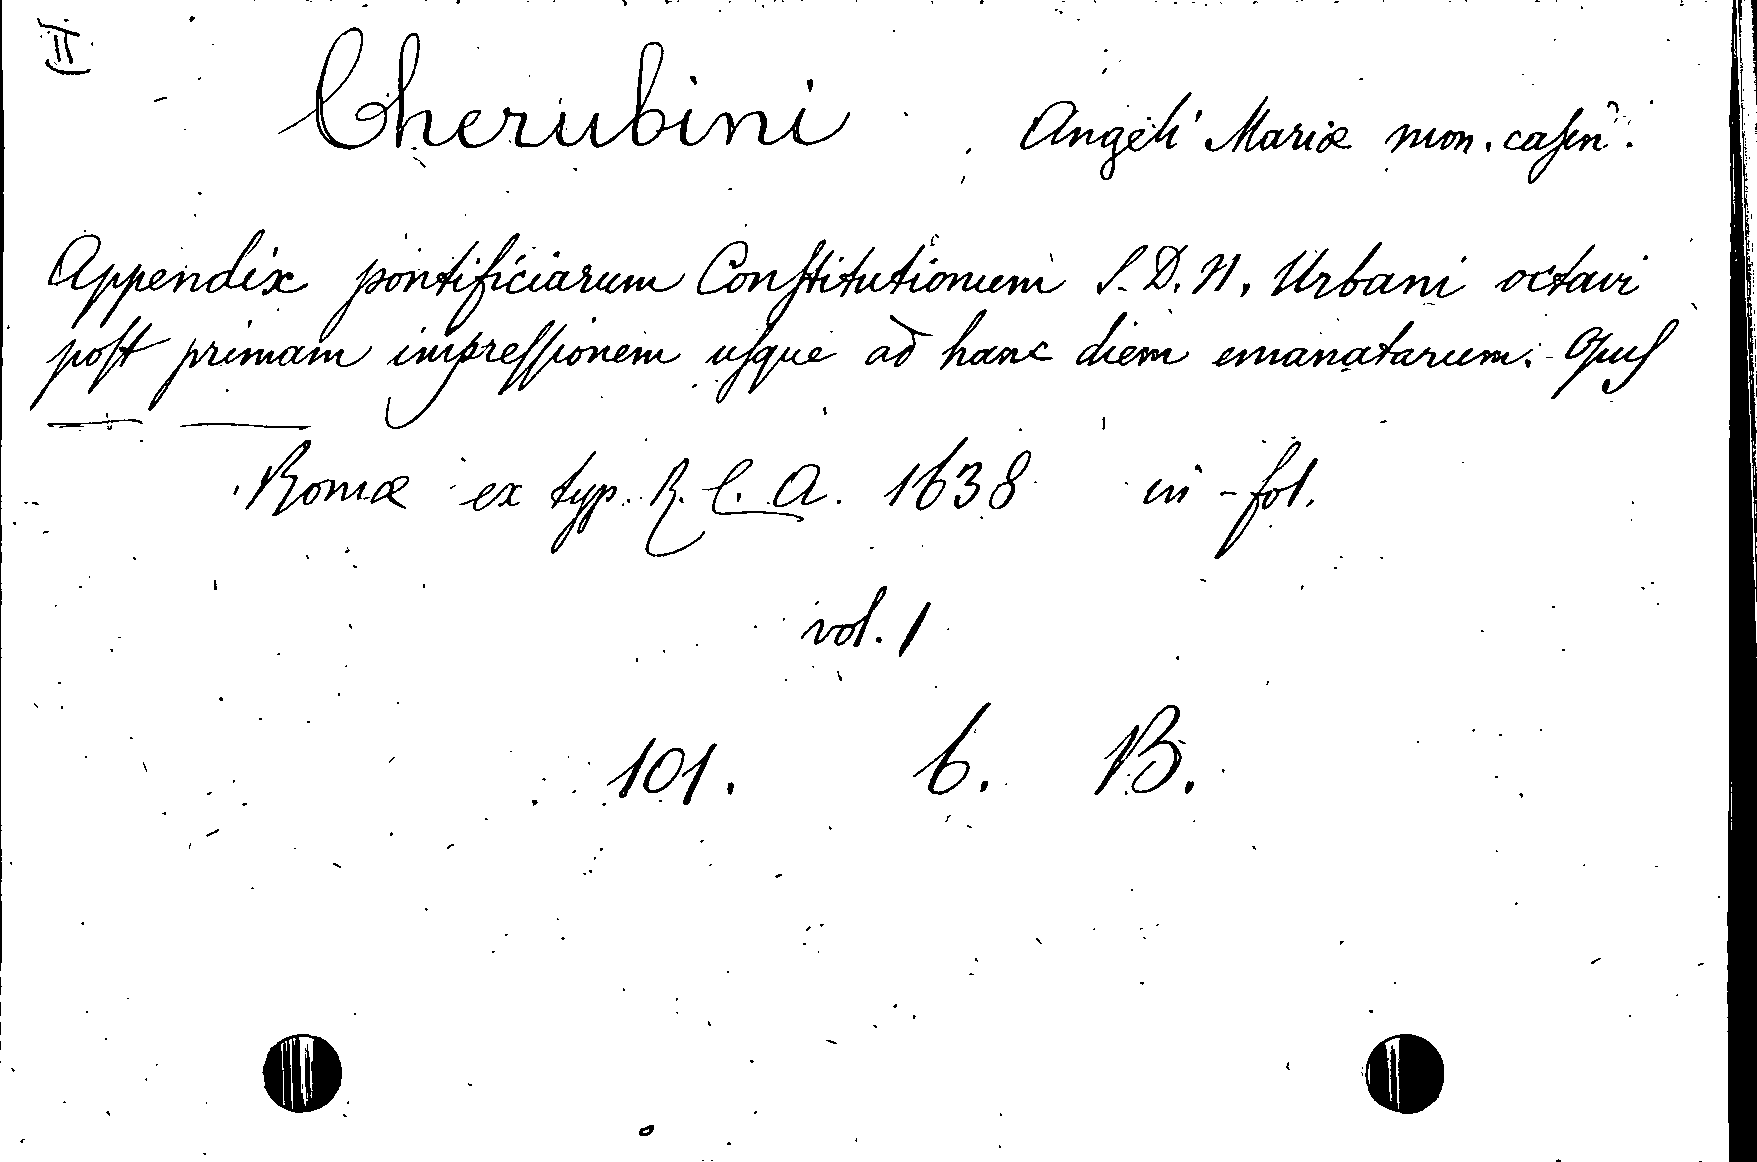 II
Cherubini Angeli Mariæ mon. casin.
Appendix pontificiarum Conſtitutionum S. D. N. Urbani octavi
poſt primam impreſſionem uſque ad hanc diem emanatarum. Opus
Romæ ex typ. R. C. A. 1638 in-fol.
vol. 1
101. 6. B.